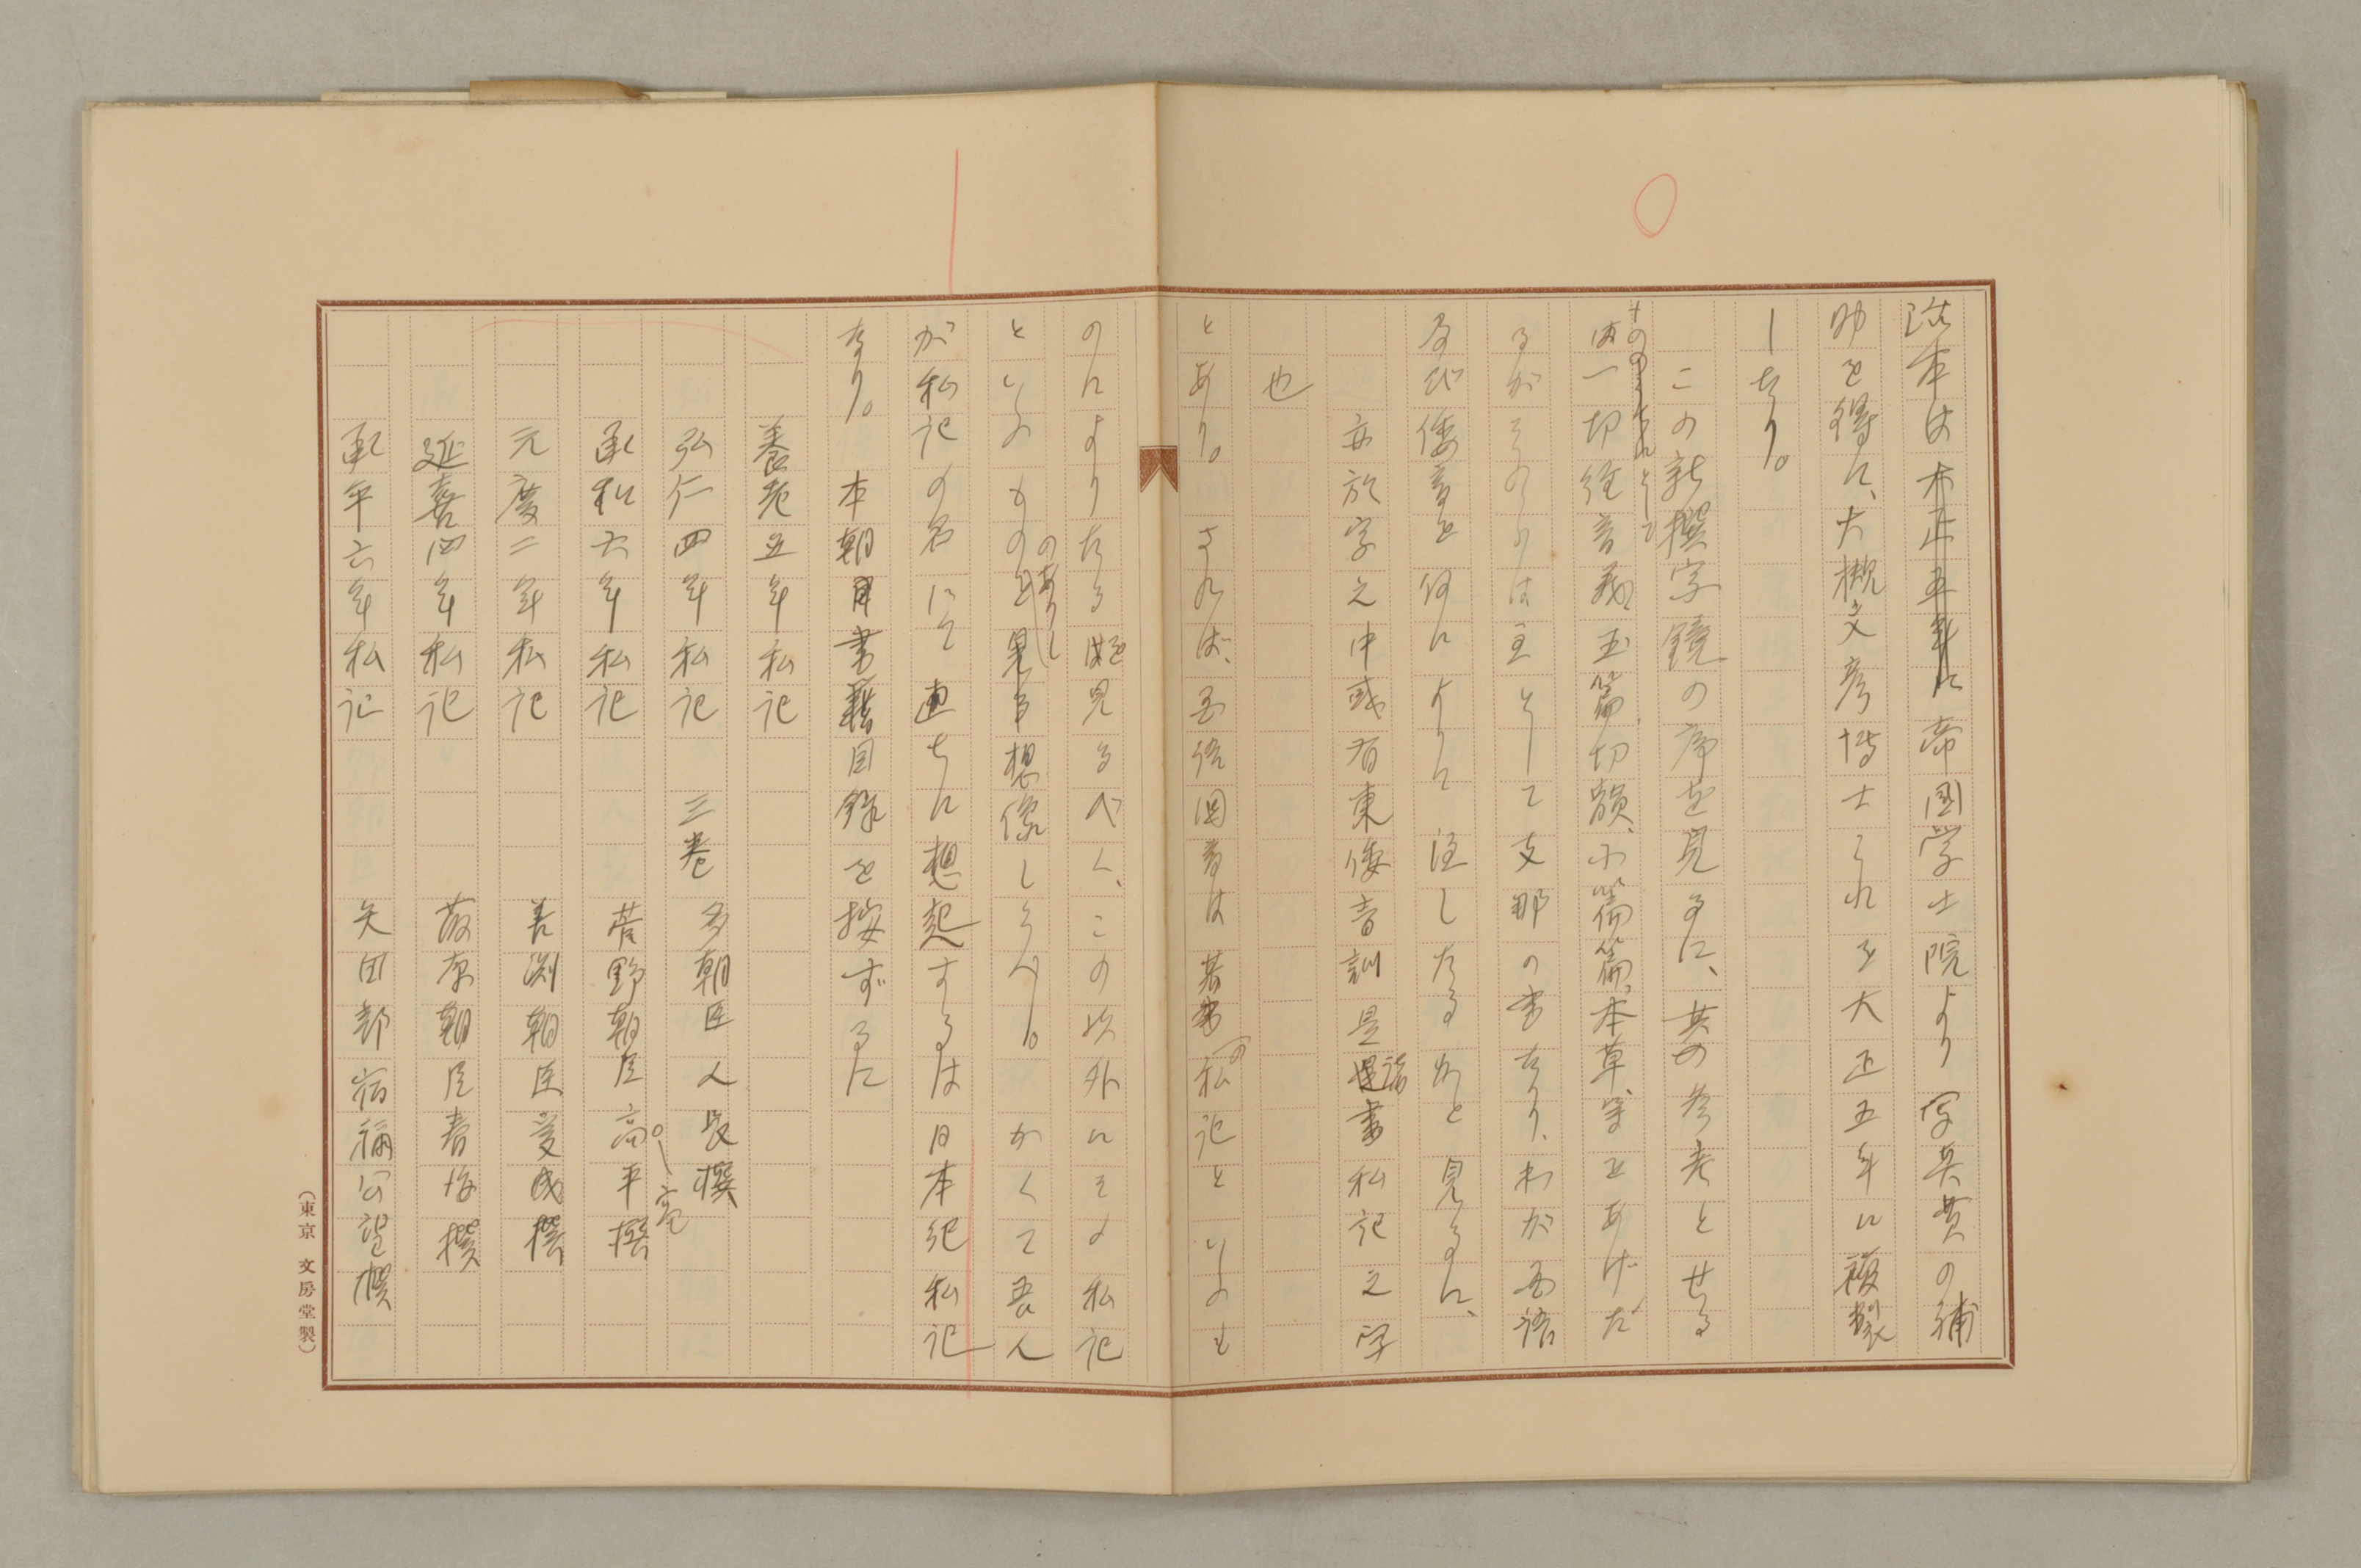 本は大正五年に帝国学士院より写真費の補
助を得に、大槻文彦博士これを大正五年に複製
したり。
この新撰字鏡の序を見るに、其の参考とせる
ものゝ主なるものとして
は一切経音義、玉篇、切韻、小篇篇、本草等をあげた
るがそのうちは主として支那の書なり、わが国語
及び倭音を何によりて注したるかと見るに、
亦於字之中或有東倭音訓是諸書私記之字
也
とあり。されば、国語倭音は某書の私記といふも
のによりたるを見るべく、この以外にその私記
といふものゝありしを想像しうべし。かくて吾人
が私記の名にて直ちに想起するは日本紀私記
なり。本朝書籍目録を按ずるに
養老五年私記
弘仁四年私記 三巻 多朝臣人長撰
承和六年私記 菅野朝臣高平撰
元慶二年私記 善淵朝臣愛成撰
延喜四年私記 藤原朝臣春海撰
承平六年私記 矢田部宿禰公望撰
(東京 文房堂製)